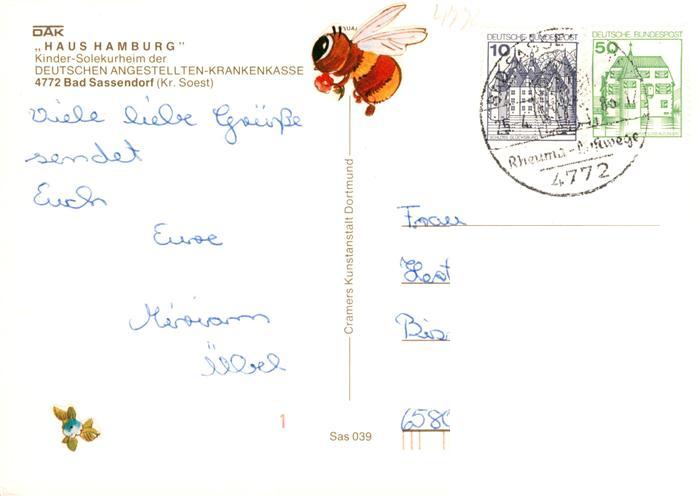 DAK
„HAUS HAMBURG"
Kinder-Solekurheim der
DEUTSCHEN ANGESTELLTEN-KRANKENKASSE
4772 Bad Sassendorf (Kr. Soest)
Viele liebe Grüße
sendet
Euch
Eure
Miriam
Übel
1
Cramers Kunstanstalt Dortmund
Sas 039
4772
DEUTSCHE BUNDESPOST
10
SCHLOSS GLÜCKSBURG
DEUTSCHE BUNDESPOST
50
Rheuma - Atemwege
4772
Frau
Hest
Bis
658